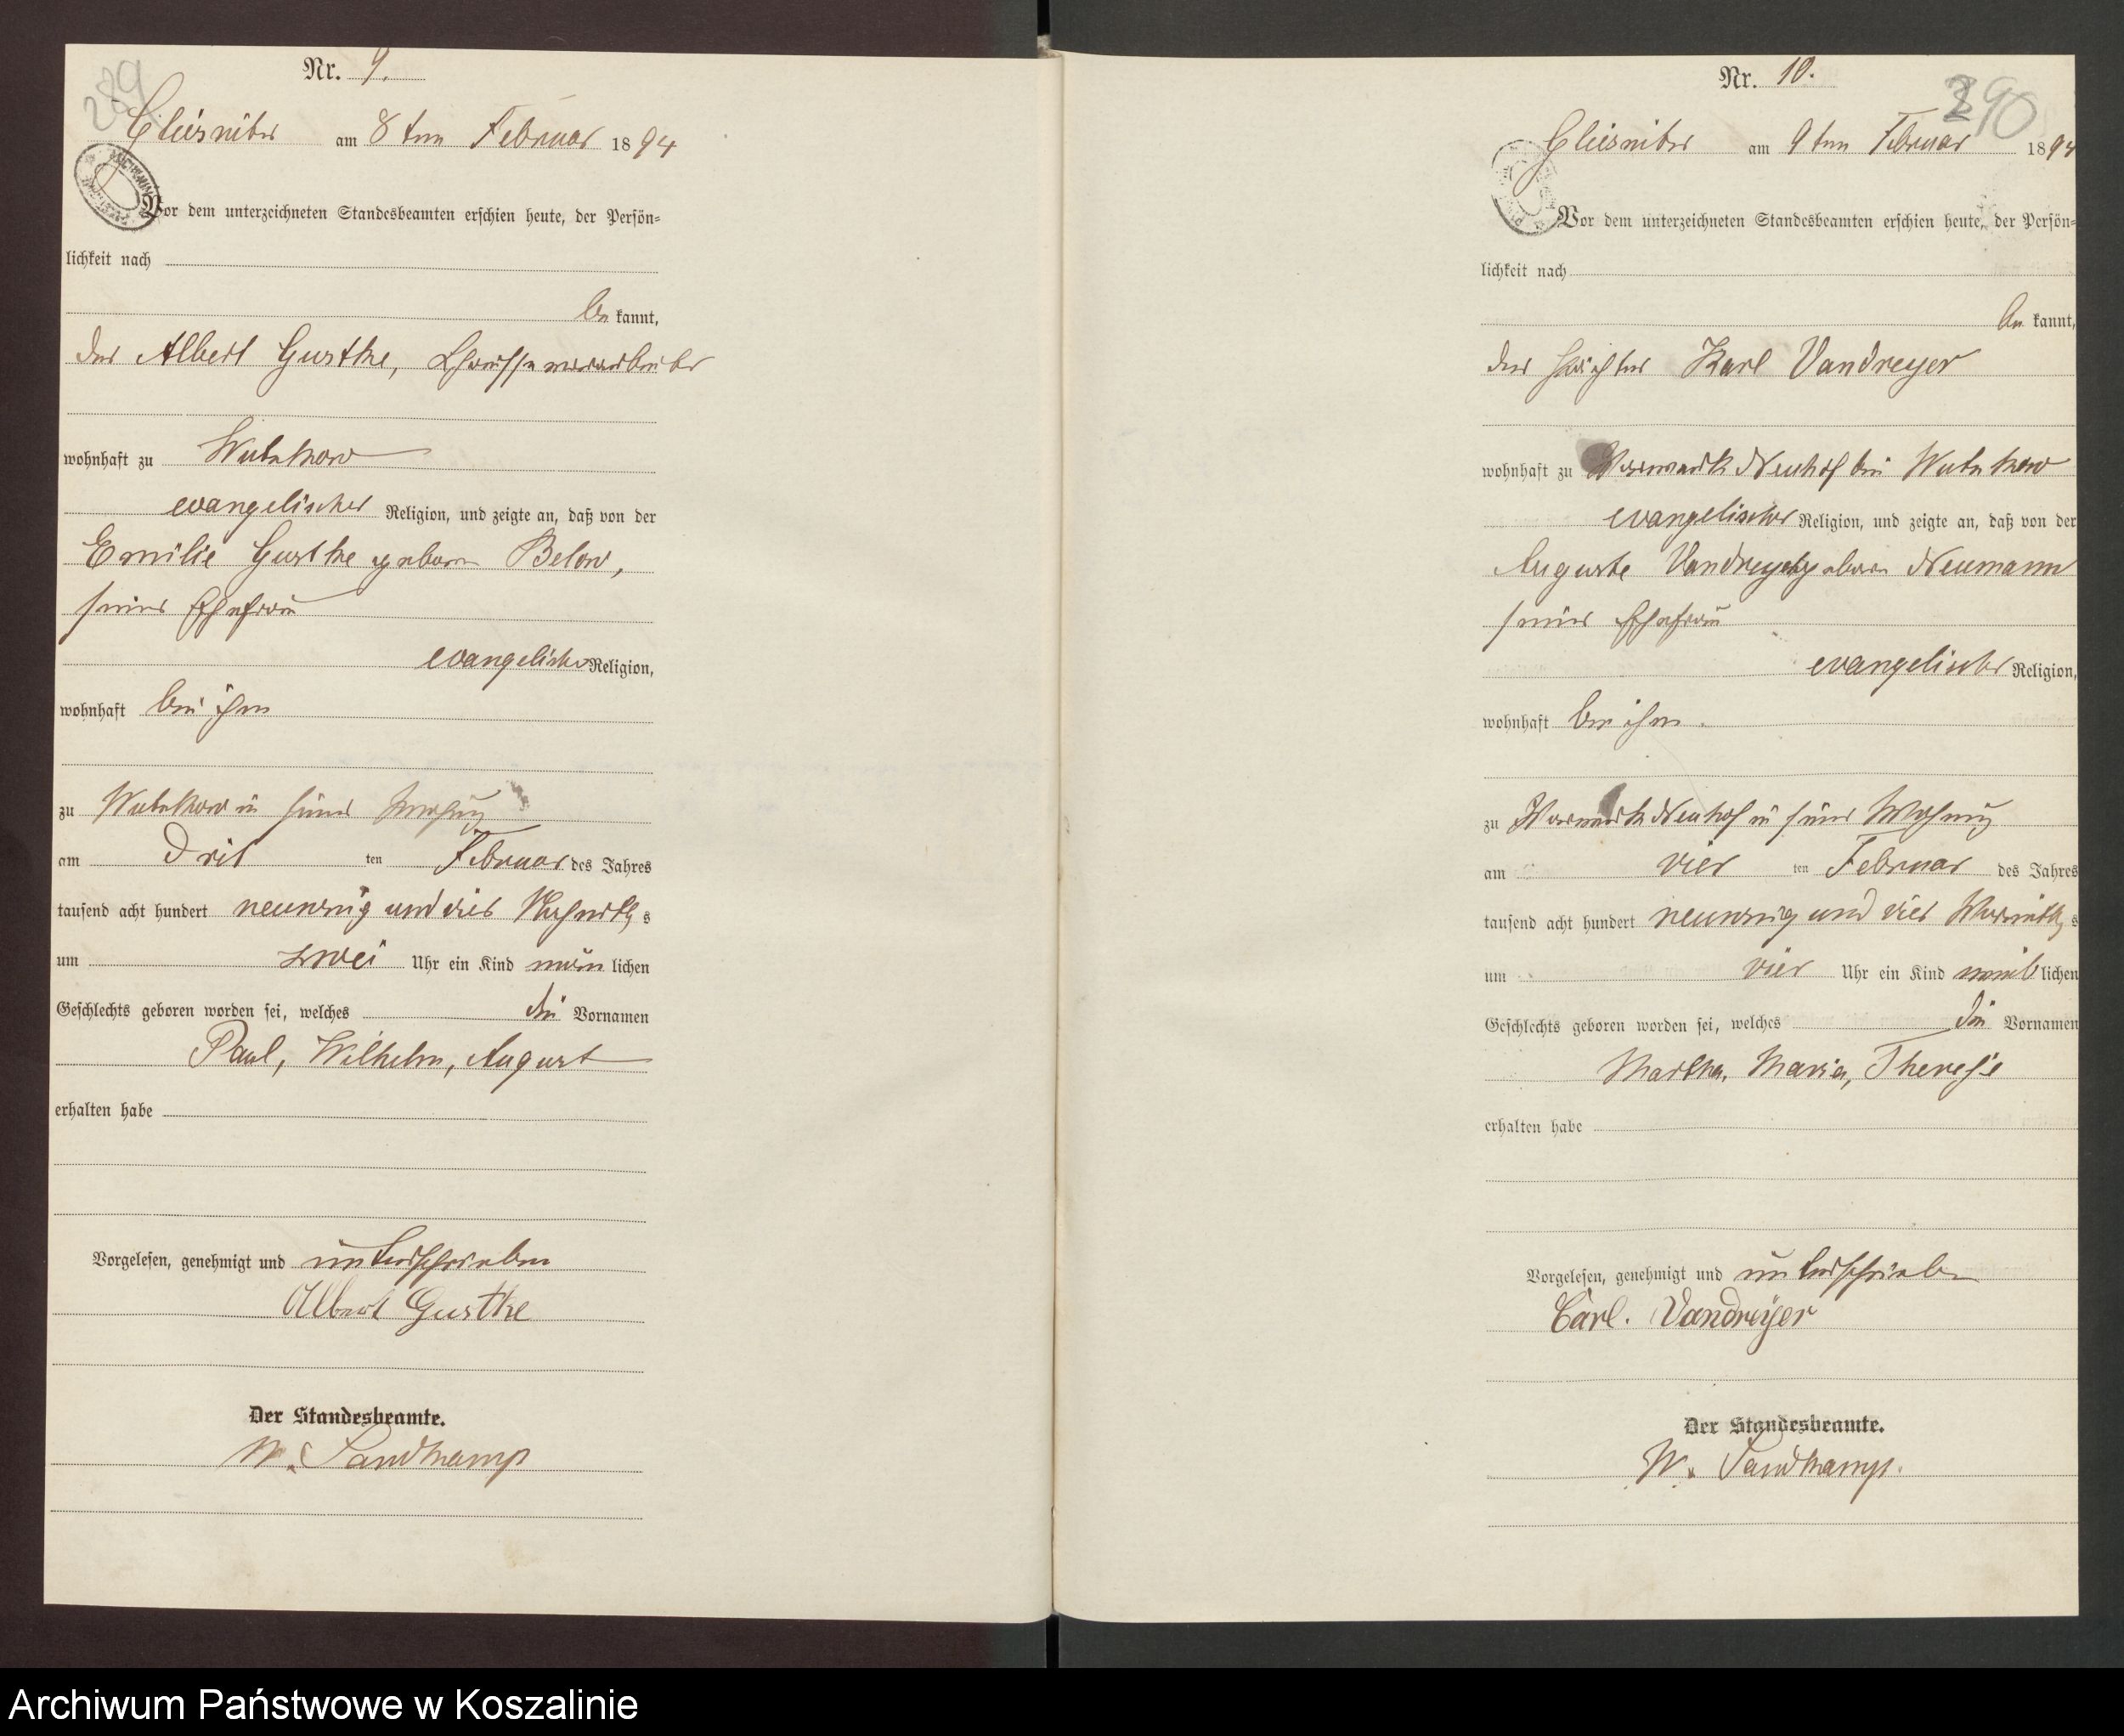 289
Nr. 9.
Gliesnitz am 8ten Februar 1894
Vor dem unterzeichneten Standesbeamten erschien heute, der Persön=
lichkeit nach
be kannt,
der Albert Gustke, Chausseearbeiter
wohnhaft zu Wutzkow
evangelischer Religion, und zeigte an, daß von der
Emilie Gustke geboren Below,
seiner Ehefrau
evangelischer Religion,
wohnhaft bei ihm
zu Wutzkow in seiner Wohnung
am drit ten Februar des Jahres
tausend acht hundert neunzig und vier Nachmittags
um zwei Uhr ein Kind männlichen
Geschlechts geboren worden sei, welches die Vornamen
Paul, Wilhelm, August
erhalten habe
Vorgelesen, genehmigt und unterschrieben
Albert Gustke
Der Standesbeamte.
W. Sandkamp
290
Nr. 10.
Gliesnitz am 9ten Februar 1894
Vor dem unterzeichneten Standesbeamten erschien heute, der Persön=
lichkeit nach
be kannt,
der Karl Vandreyer
wohnhaft zu Vorwerk Neuhof bei Wutzkow
evangelischer Religion, und zeigte an, daß von der
Auguste Vandreyer geboren Neumann
seiner Ehefrau
evangelischer Religion,
wohnhaft bei ihm.
zu Vorwerk Neuhof in seiner Wohnung
am vier ten Februar des Jahres
tausend acht hundert neunzig und vier Vormittags
um vier Uhr ein Kind weiblichen
Geschlechts geboren worden sei, welches die Vornamen
Martha, Maria, Therese
erhalten habe
Vorgelesen, genehmigt und unterschrieben
Carl. Vandreyer
Der Standesbeamte.
W. Sandkamp.
Archiwum Państwowe w Koszalinie